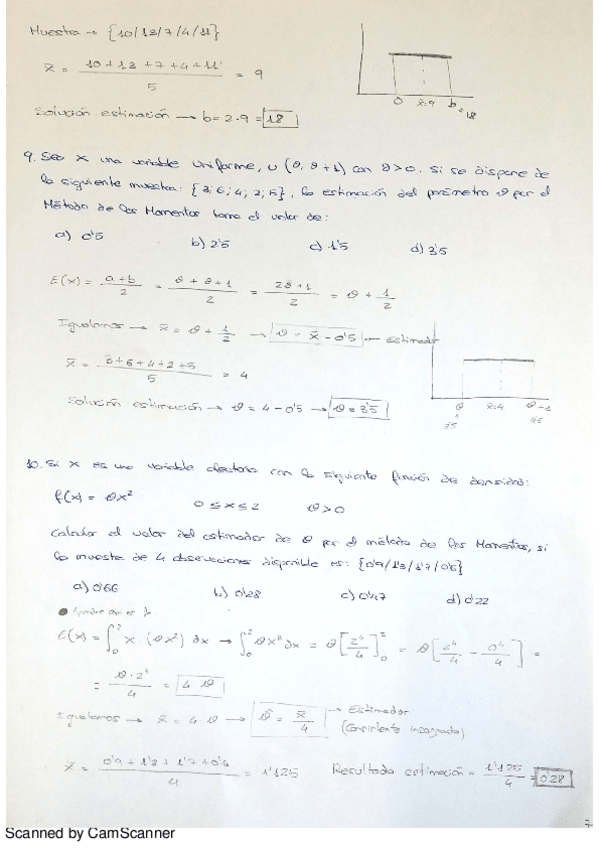 Muestra → {10/13/7/4/11}
x̄ = (10+13+7+4+11)/5 = 9
0 x̄=9 b = 18
Solución estimación → b = 2·9 = 18
9. Sea X una variable uniforme, U (θ, θ+1) con θ>0. Si se dispone de
la siguiente muestra: {3; 6; 4; 2; 5}, la estimación del parámetro θ por el
Método de los Momentos toma el valor de:
a) 0'5 b) 2'5 c) 1'5 d) 3'5
E(x) = (a+b)/2 = (θ+θ+1)/2 = (2θ+1)/2 = θ + 1/2
Igualamos → x̄ = θ + 1/2 → θ = x̄ - 0'5 → Estimador
x̄ = (3+6+4+2+5)/5 = 4
θ x̄=4 θ-1
3'5 4'5
Solución estimación → θ = 4 - 0'5 → θ = 3'5
10. Si X es una variable aleatoria con la siguiente función de densidad:
f(x) = θx² 0 ≤ x ≤ 2 θ>0
Calcular el valor del estimador de θ por el método de los Momentos, si
la muestra de 4 observaciones disponible es: {0'9/1'3/1'7/0'6}
a) 0'66 b) 0'28 c) 0'47 d) 0'22
E(x) = ∫₀² x (θx²) dx → ∫₀² θx³ dx = θ[2⁴/4]₀² = θ[2⁴/4 - 0⁴/4] =
= θ·2⁴/4 = 4θ
Igualamos → x̄ = 4·θ → θ̂ = x̄/4 → Estimador
x̄ = (0'9+1'3+1'7+0'6)/4 = 1'125 Resultado estimación = 1'125/4 = 0'28
7
Scanned by CamScanner